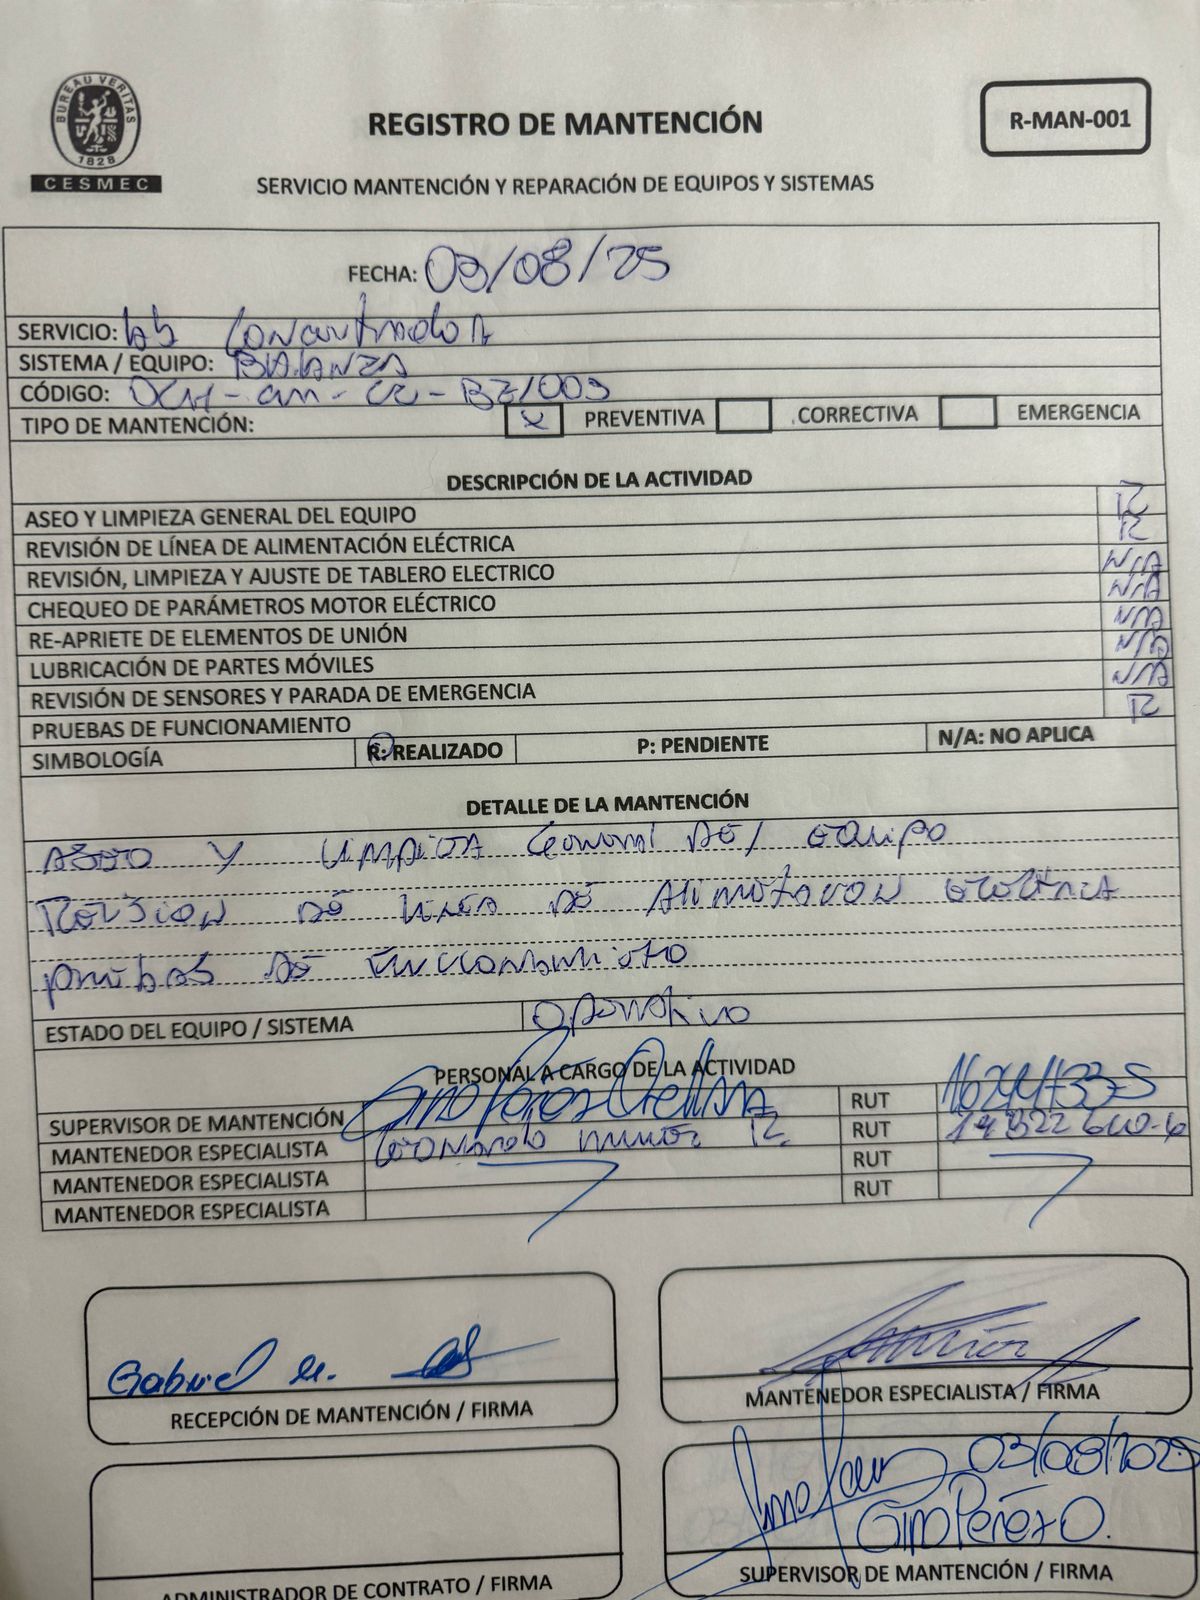 BUREAU VERITAS
1828
CESMEC
REGISTRO DE MANTENCIÓN
R-MAN-001
SERVICIO MANTENCIÓN Y REPARACIÓN DE EQUIPOS Y SISTEMAS
FECHA: 03/08/25
SERVICIO: Lab Concentradora
SISTEMA / EQUIPO: BALANZA
CÓDIGO:
TIPO DE MANTENCIÓN: X PREVENTIVA CORRECTIVA EMERGENCIA
DESCRIPCIÓN DE LA ACTIVIDAD
ASEO Y LIMPIEZA GENERAL DEL EQUIPO R
REVISIÓN DE LÍNEA DE ALIMENTACIÓN ELÉCTRICA R
REVISIÓN, LIMPIEZA Y AJUSTE DE TABLERO ELECTRICO N/A
CHEQUEO DE PARÁMETROS MOTOR ELÉCTRICO N/A
RE-APRIETE DE ELEMENTOS DE UNIÓN N/A
LUBRICACIÓN DE PARTES MÓVILES N/A
REVISIÓN DE SENSORES Y PARADA DE EMERGENCIA N/A
PRUEBAS DE FUNCIONAMIENTO R
SIMBOLOGÍA R: REALIZADO P: PENDIENTE N/A: NO APLICA
DETALLE DE LA MANTENCIÓN
ASEO Y LIMPIEZA General DEL equipo
Revision DE LINEA DE Alimentacion electrica
pruebas DE Funcionamiento
ESTADO DEL EQUIPO / SISTEMA operativo
PERSONAL A CARGO DE LA ACTIVIDAD
SUPERVISOR DE MANTENCIÓN Gino Perez Orellana RUT
MANTENEDOR ESPECIALISTA muñoz R. RUT
MANTENEDOR ESPECIALISTA RUT
MANTENEDOR ESPECIALISTA RUT
Gabriel M.
RECEPCIÓN DE MANTENCIÓN / FIRMA
MANTENEDOR ESPECIALISTA / FIRMA
03/08/2025
Gino Perez O.
ADMINISTRADOR DE CONTRATO / FIRMA
SUPERVISOR DE MANTENCIÓN / FIRMA